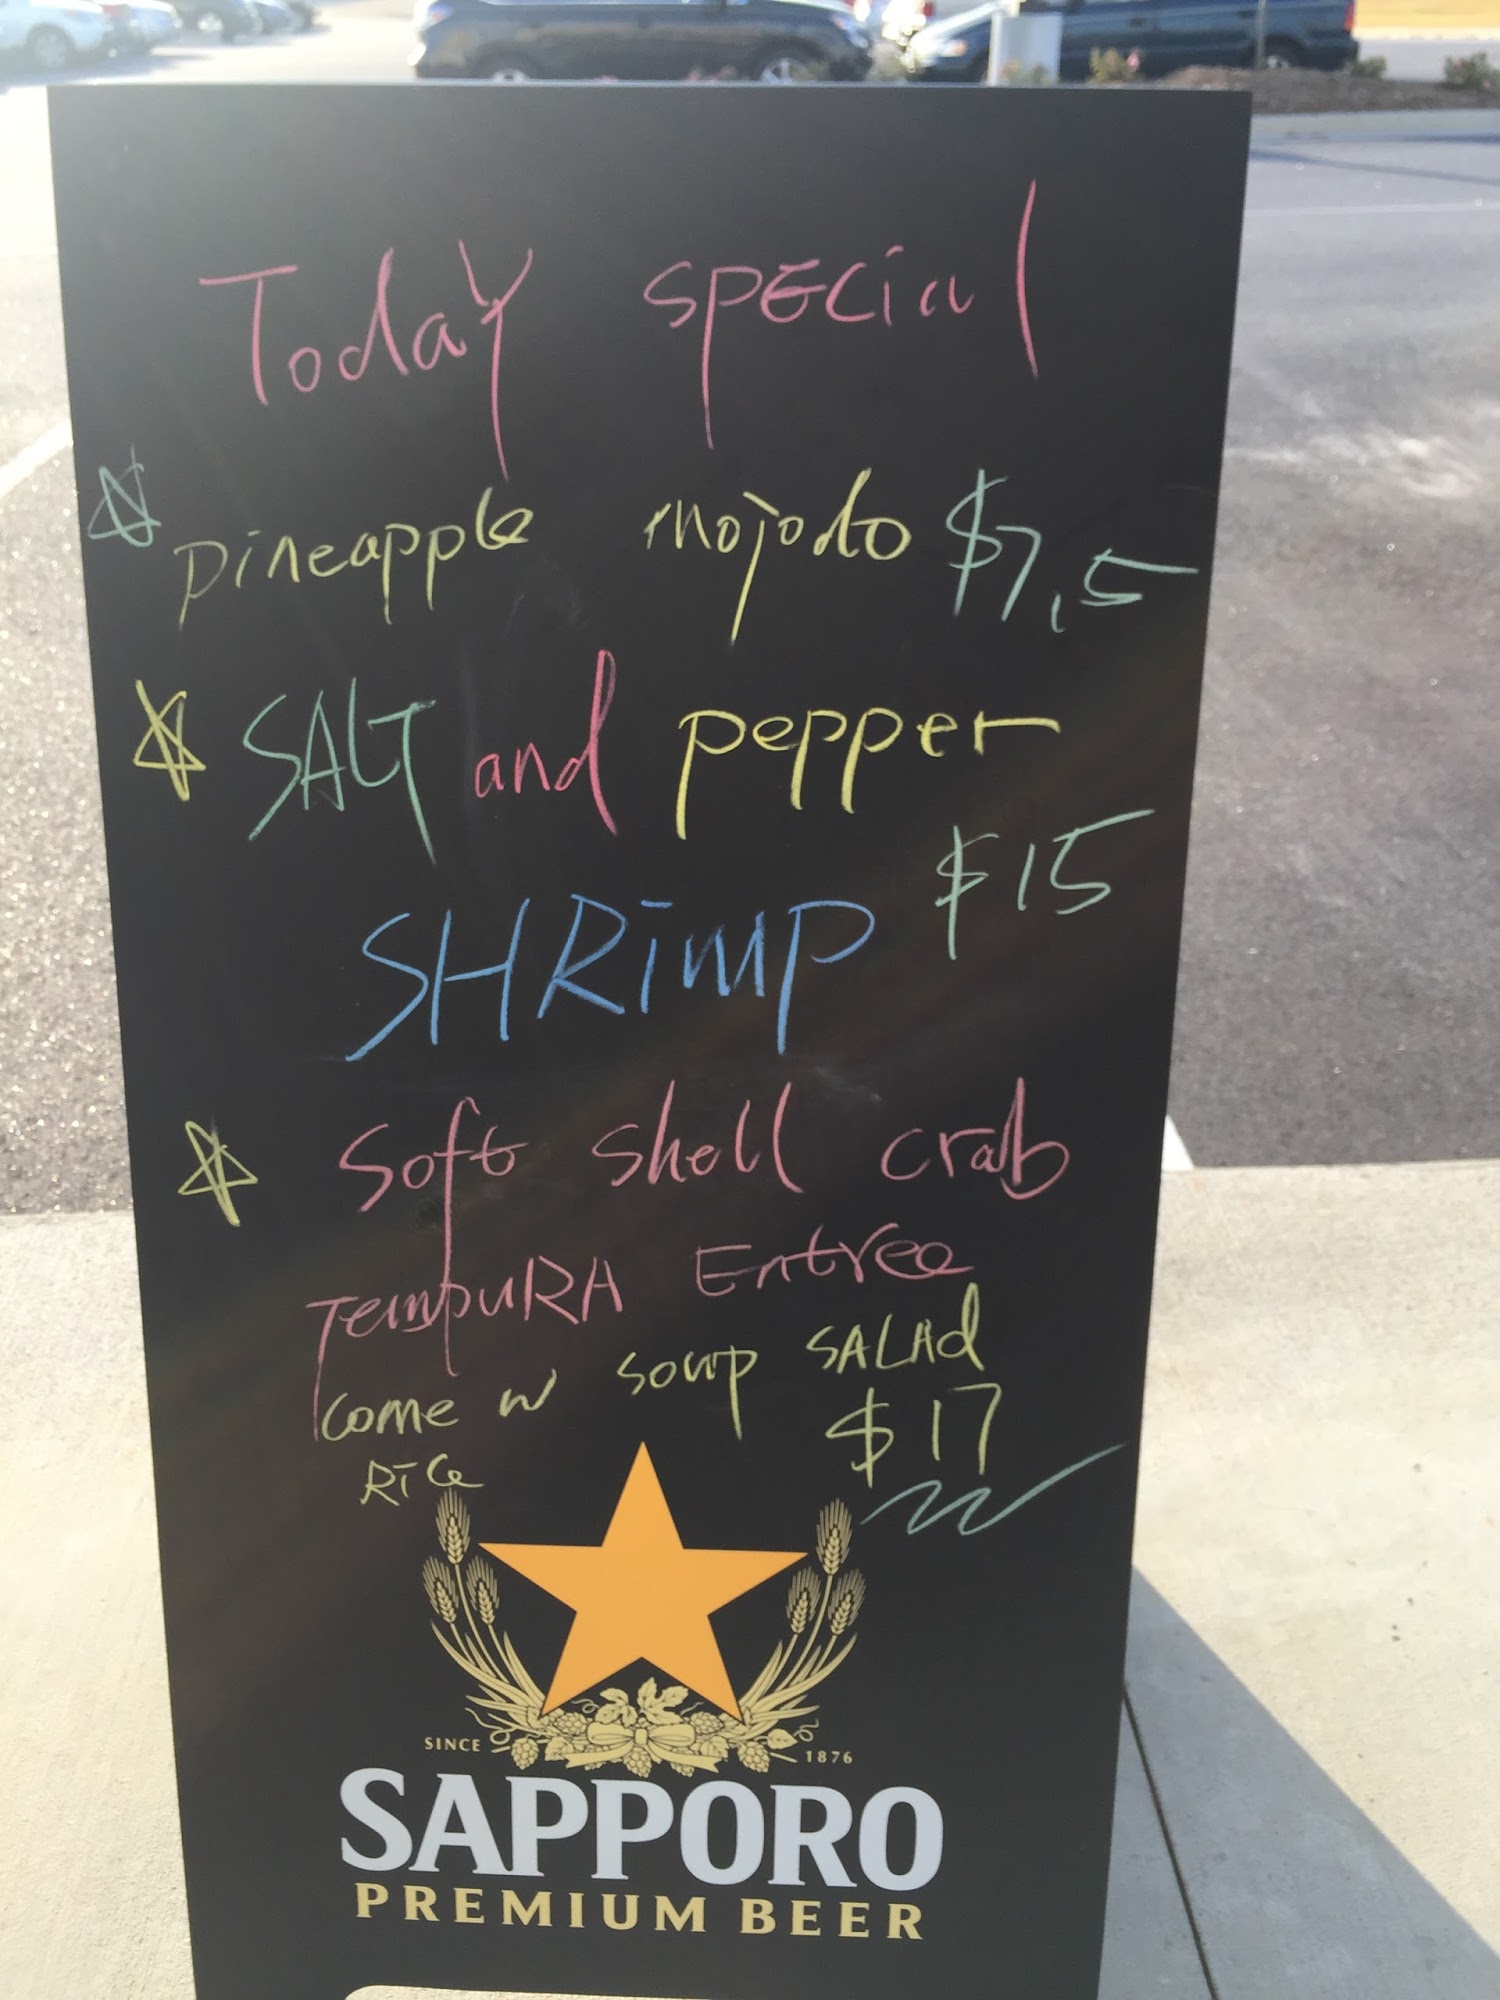 Today SPECial
pineapple mojodo $7,5
SALT and pepper
$15
SHRimp
Soft shell crab
TempuRA Entree
come w soup SALAd
Rice $17
SINCE 1876
SAPPORO
PREMIUM BEER